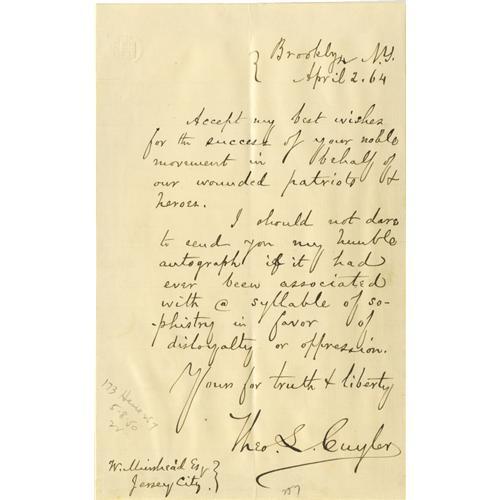 Brooklyn N.Y.
April 2. 64
Accept my best wishes
for the success of your noble
movement in behalf of
our wounded patriots &
heroes.
I should not dare
to send you my humble
autograph if it had
ever been associated
with a syllable of so-
-phistry in favor of
disloyalty or oppression.
Yours for truth & liberty
Theo. L. Cuyler
W. Muirhead Esq
Jersey City.
173
5-8-50